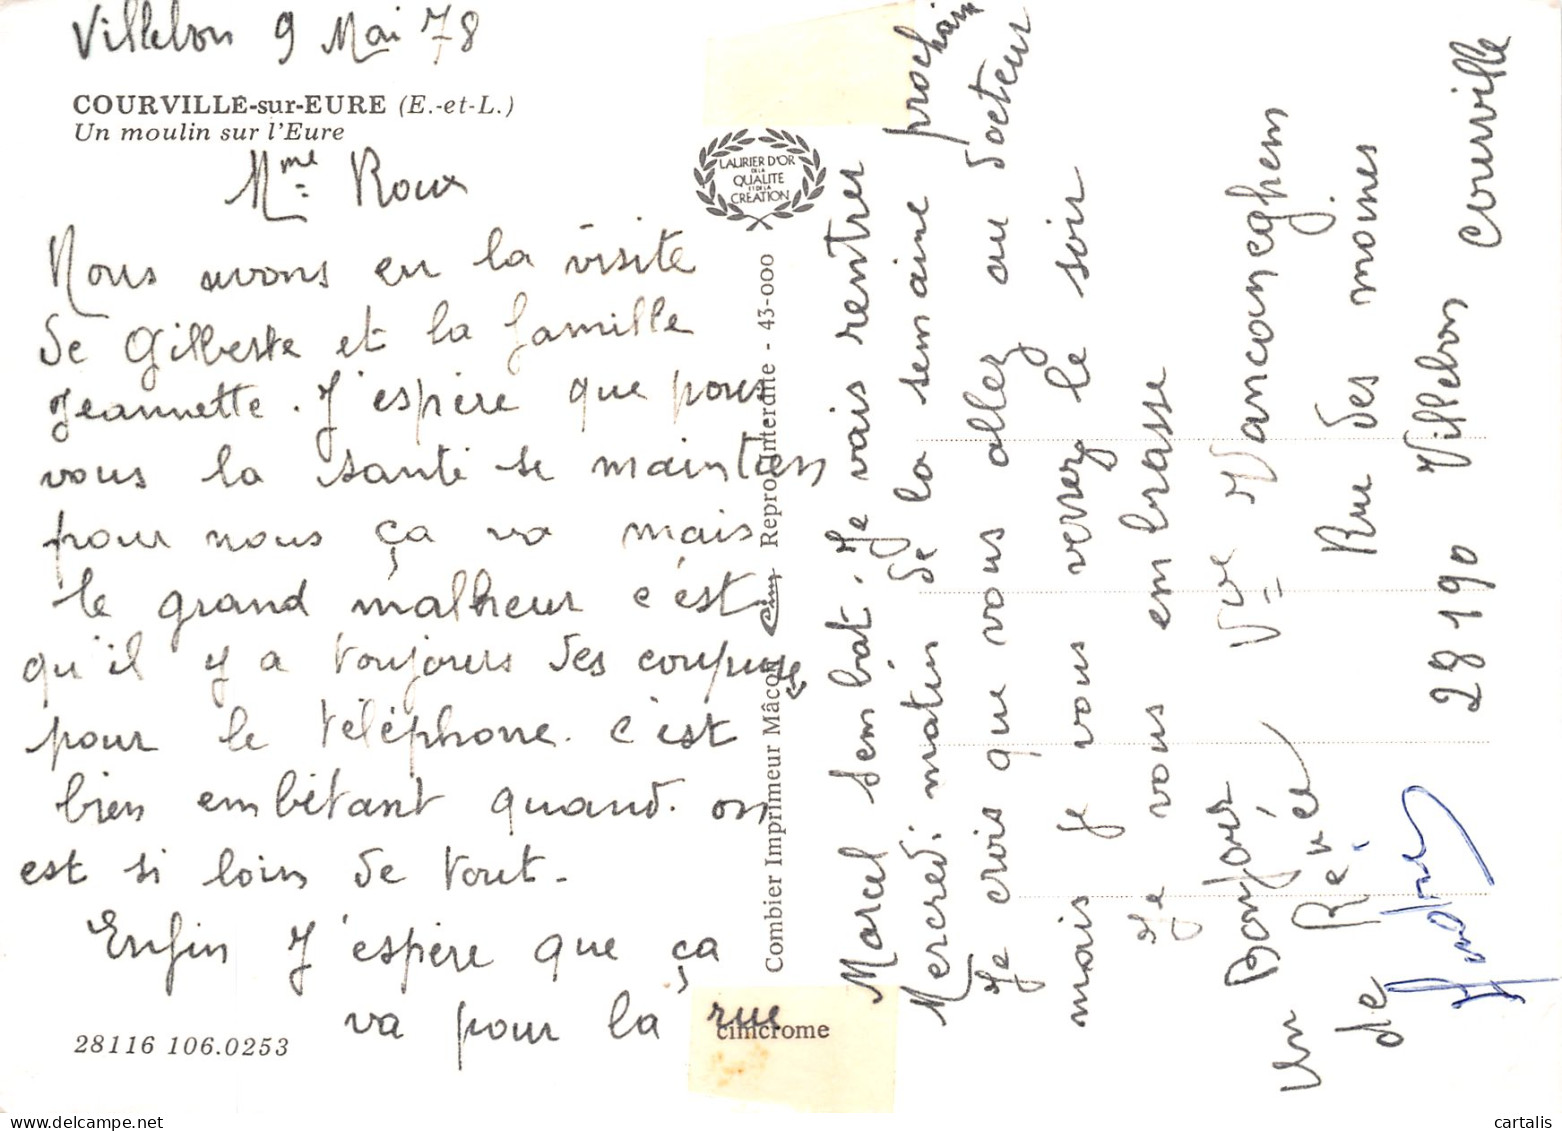 Villebon 9 Mai 78
COURVILLE-sur-EURE (E.-et-L.)
Un moulin sur l'Eure
Mme Roux
Nous avons eu la visite
de Gilberte et la famille
Jeannette. J'espère que pour
vous la santé se maintien
pour nous ça va mais
le grand malheur c'est
qu'il y a toujours des coupure
pour le téléphone. c'est
bien embêtant quand. on
est si loin de tout-
Enfin j'espère que ça
va pour la rue
28116 106.0253
LAURIER D'OR
DE LA
QUALITE
ET DE LA
CREATION
Combier Imprimeur Mâcon Cim Repro. interdite - 43-000
cimcrome
Marcel sembat. Je vais rentrer
Mercredi matin de la semaine prochain
Je crois que vous allez au docteur
mais je vous verrez le soir
Je vous embrasse
Vve Vancouneghem
Rue des moines
28190 Villebon Courville
Un Bonjour
de Renée
cartalis